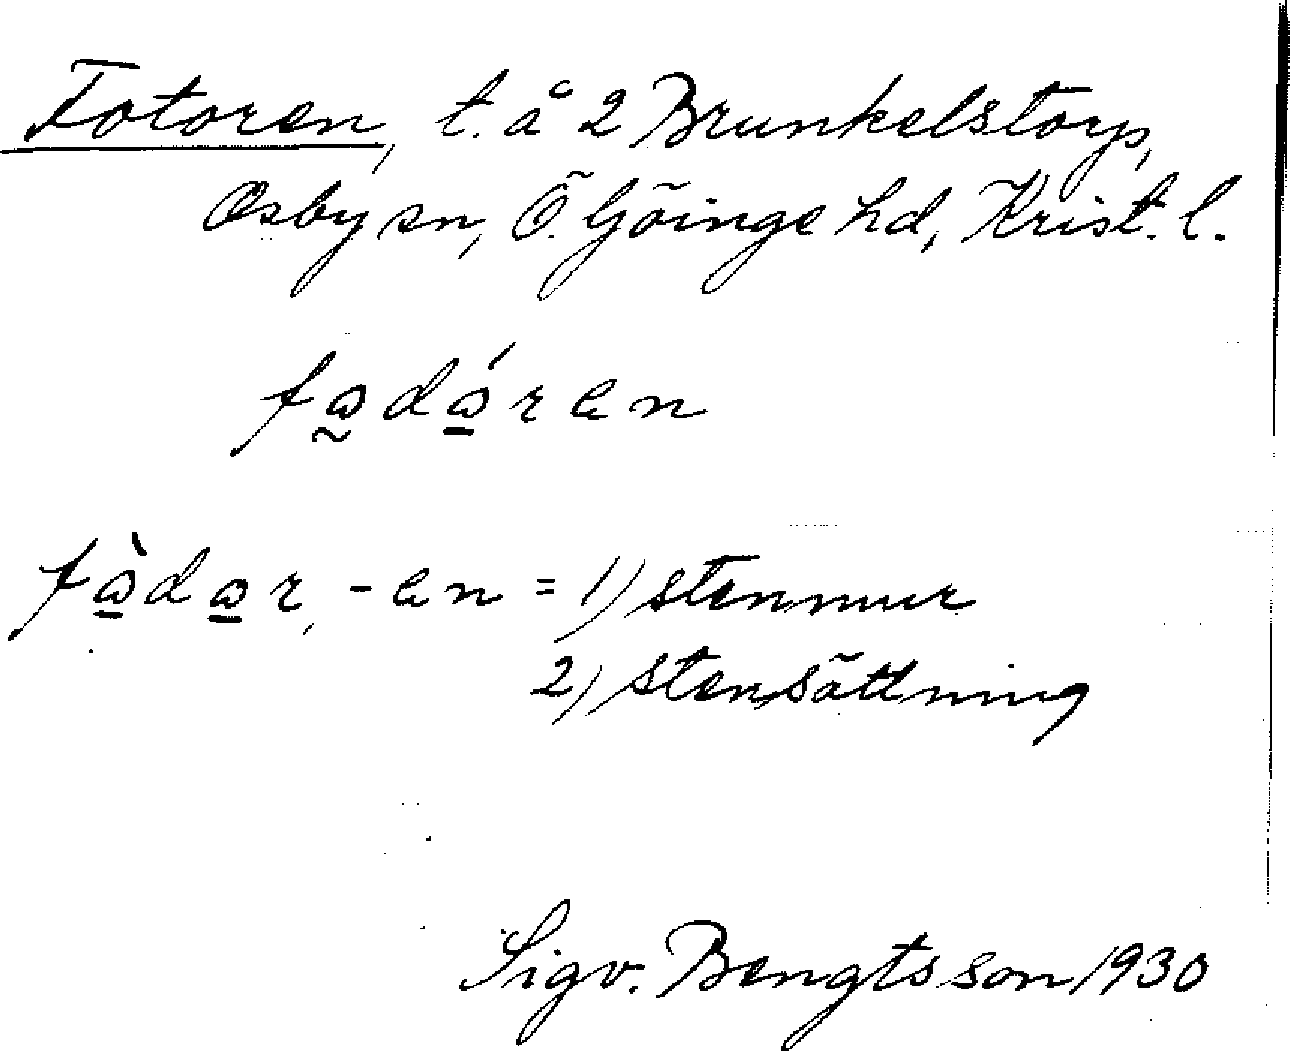 Fotoren, t. å 2 Brunkelstorp,
Osby sn, Ö. Göinge hd, Krist. l.
fω̰dώ̲ren
fὼ̲dω̲r, -en = 1) stenmur
2) stensättning
Sigv. Bengtsson 1930